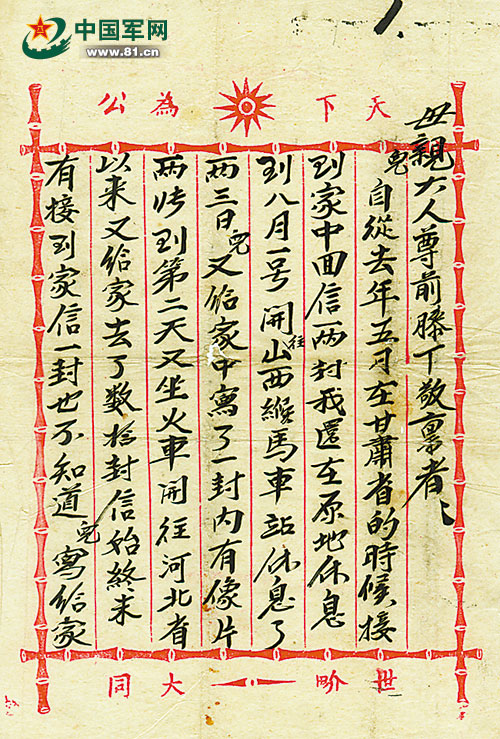 中国军网
www.81.cn
天下為公
母親大人尊前膝下敬禀者
兒自從去年五月在甘肅省的時候接
到家中囬信一两封我還在原地休息
到八月一号開往山西緱馬車站休息了
两三日兒又给家中寫了一封内有像片
两张到第二天又坐火車開往河北省
以来又给家去了數拾封信始終未
有接到家信一封也不知道兒寫给家
世畍大同